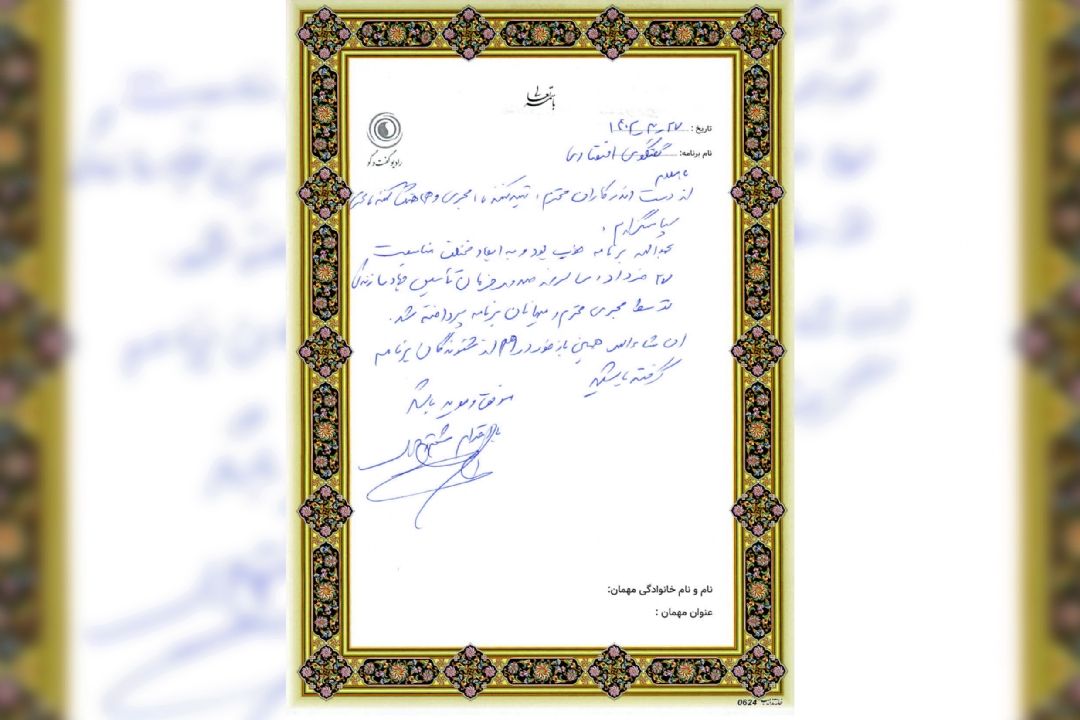 باسمه تعالی
رادیو گفت و گو
تاریخ : ۲۷_۳_۱۴۰۳
نام برنامه: گفتگوی اقتصادی
با سلام
از دست اندرکاران محترم، تهیه کننده، مجری و هماهنگ کننده
سپاسگزارم.
بحمدالله برنامه خوب بود و به ابعاد مختلف مناسبت
۲۷ خرداد، سالروز صدور فرمان تأسیس جهاد سازندگی
توسط مجری محترم و میهمانان برنامه پرداخته شد.
ان شاءالله همین بازخورد را هم از شنوندگان برنامه
گرفته باشید
موفق و موید باشید
با احترام
نام و نام خانوادگی مهمان:
عنوان مهمان :
0624